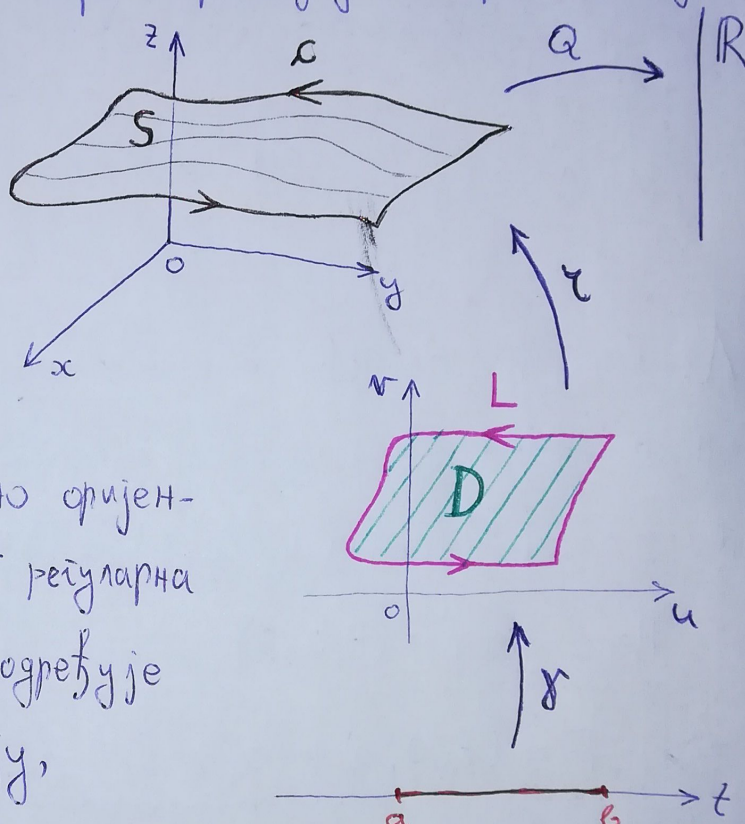 z
c
Q
ℝ
S
O
y
x
r
v
L
D
O
u
о оријен-
регуларна
одређује
у,
γ
a
b
t